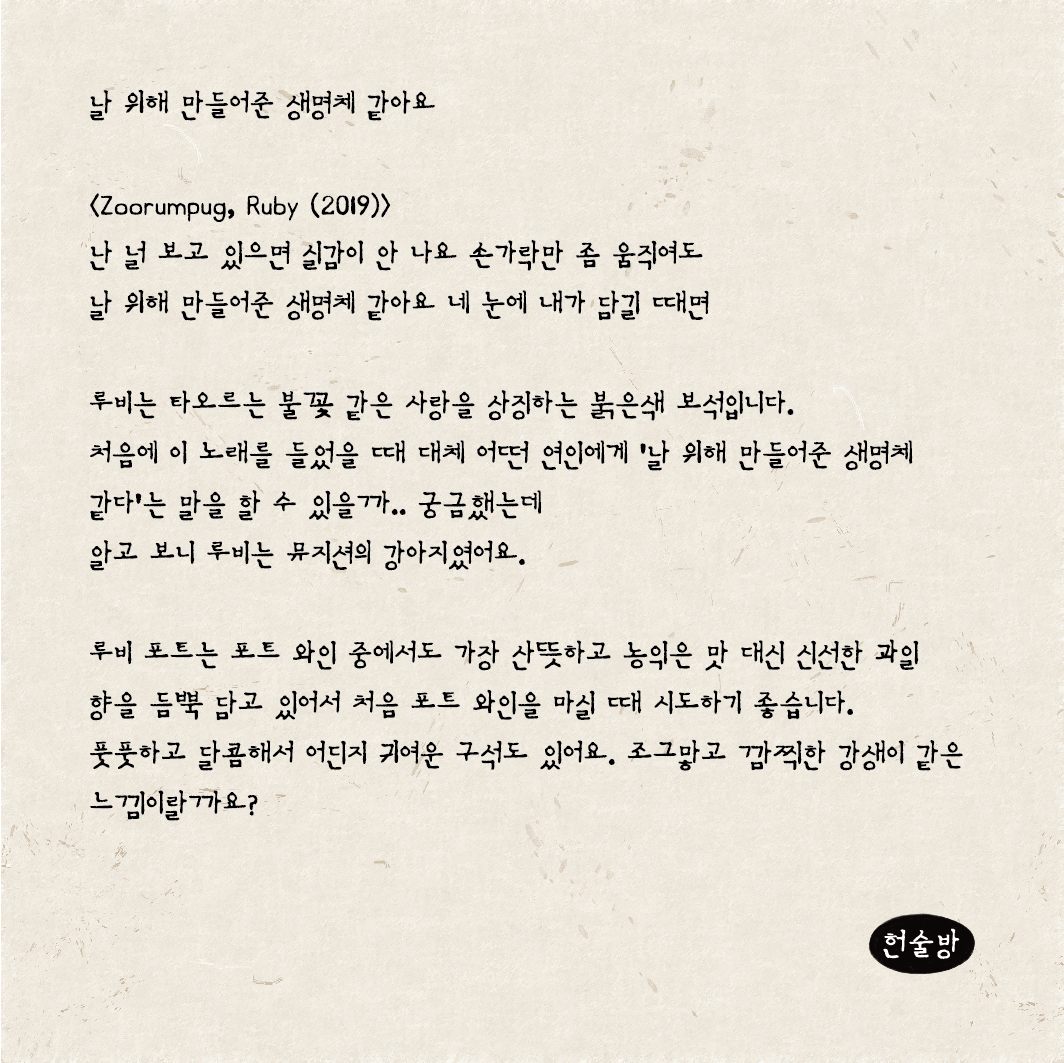 날 위해 만들어준 생명체 같아요
<Zoorumpug, Ruby (2019)>
난 널 보고 있으면 실감이 안 나요 손가락만 좀 움직여도
날 위해 만들어준 생명체 같아요 네 눈에 내가 담길 때면
루비는 타오르는 불꽃 같은 사랑을 상징하는 붉은색 보석입니다.
처음에 이 노래를 들었을 때 대체 어떤 연인에게 '날 위해 만들어준 생명체
같다'는 말을 할 수 있을까.. 궁금했는데
알고 보니 루비는 뮤지션의 강아지였어요.
루비 포트는 포트 와인 중에서도 가장 산뜻하고 농익은 맛 대신 신선한 과일
향을 듬뿍 담고 있어서 처음 포트 와인을 마실 때 시도하기 좋습니다.
풋풋하고 달콤해서 어딘지 귀여운 구석도 있어요. 조그맣고 깜찍한 강생이 같은
느낌이랄까요?
헌술방